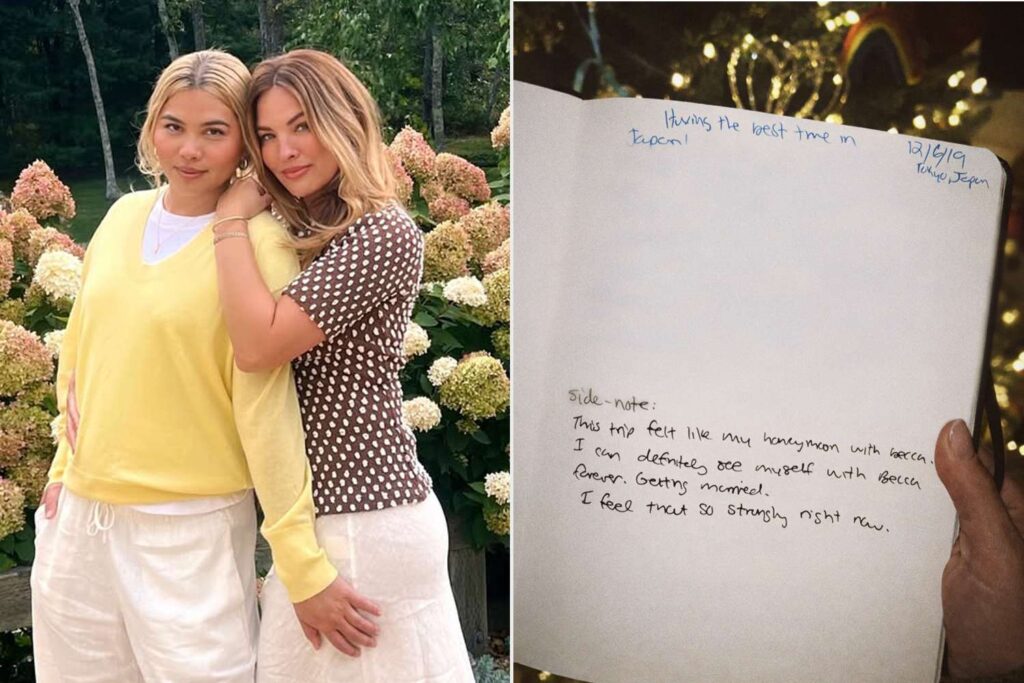 Having the best time in
Japan!
12/6/19
Tokyo, Japan
side-note:
This trip felt like my honeymoon with becca.
I can definitely see myself with Becca
forever. Getting married.
I feel that so strongly right now.